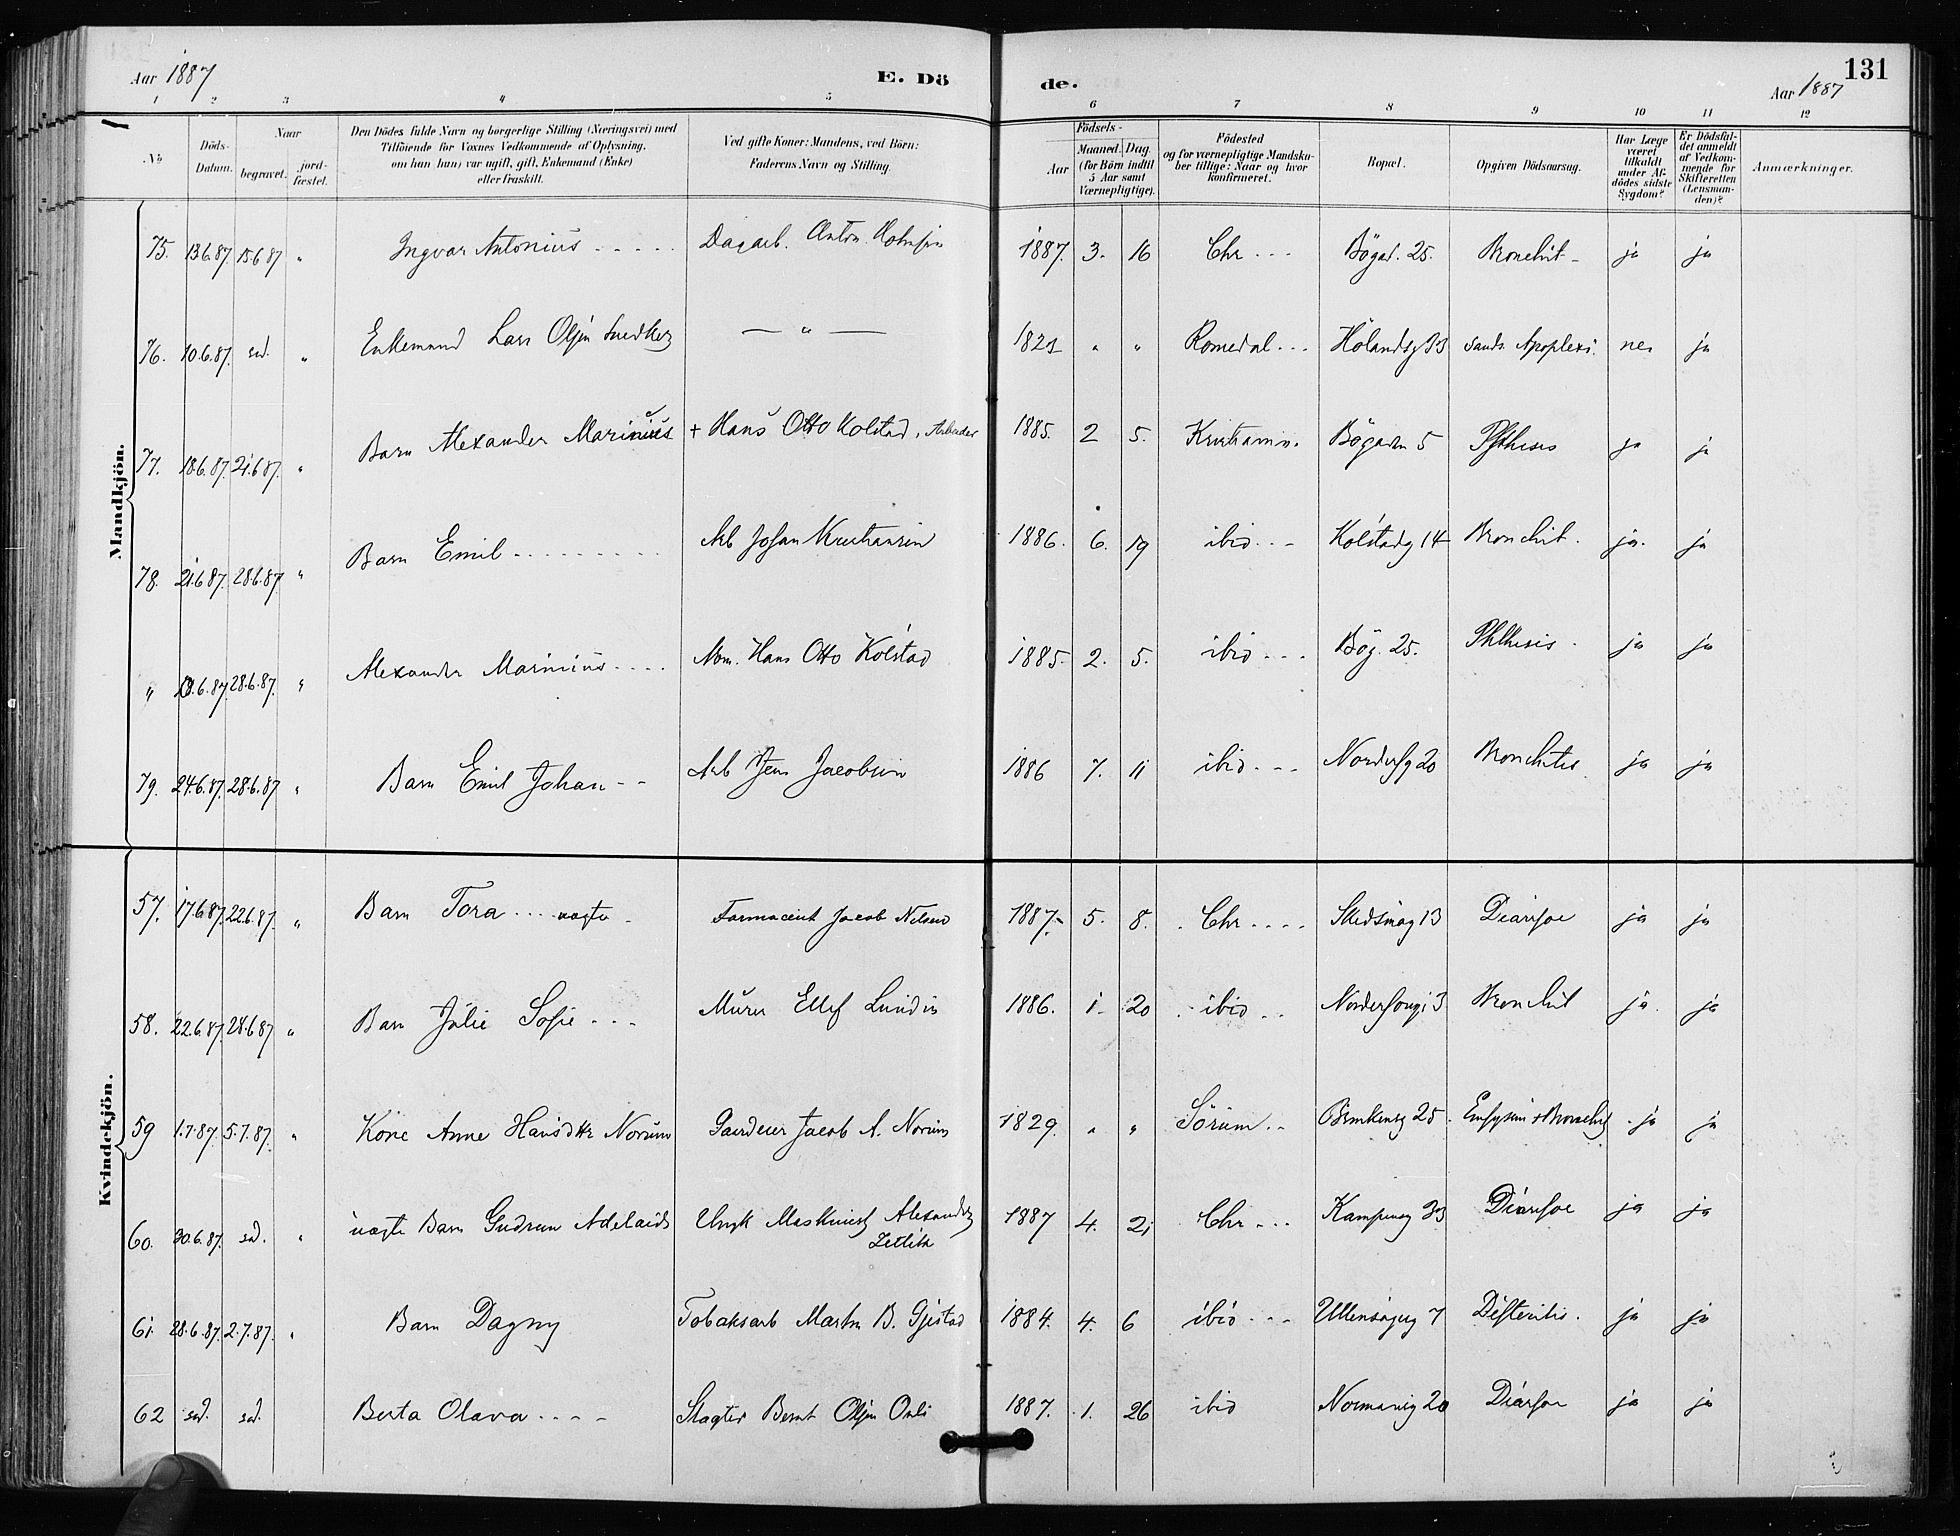 Aar 1887 E. Dö de. Aar 1887 131
1 2 3 4 5 6 7 8 9 10 11 12
No Döds-Datum. Naar begravet. jord-fæstet. Den Dödes fulde Navn og borgerlige Stilling (Næringsvei) med Tilföiende for Voxnes Vedkommende af Oplysning, om han (hun) var ugift, gift, Enkemand (Enke) eller fraskilt. Ved gifte Koner: Mandens, ved Börn: Faderens Navn og Stilling. Födsels- Aar Maaned. Dag. (for Börn indtil 5 Aar samt Værnepligtige). Födested og for værnepligtige Mandskaber tillige: Naar og hvor konfirmeret. Bopæl. Opgiven Dödsaarsag. Har Læge været tilkaldt under Afdödes sidste Sygdom? Er Dödsfaldet anmeldt af Vedkommende for Skifteretten (Lensmanden)? Anmærkninger.
Mandkjön.
75. 13.6.87. 15.6.87 " Ingvar Antonius - - - - - Dagarb. Anton 1887. 3. 16 Chr - - - Bögad. 25. Bronchit - ja ja
76. 10.6.87. sd. " Enkemand Lars Olsen Snedker — " — 1821 " " Romedal - - - Hölandsg 13 Sands. Apoplexi. nei ja
77. 18.6.87. 21.6.87. " Barn Alexander Marinius + Hans Otto Kolstad, Arbeider 1885. 2 5. Kristiania. Bögaden 5 Phthisis ja ja
78. 21.6.87. 28.6.87 " Barn Emil - - - - - - - - - Arb Johan Kristiansen 1886. 6. 19 ibid - - - Kolstadg 14 Bronchit. ja. ja
" 18.6.87. 28.6.87. " Alexander Marinius - - - - Hans Otto Kolstad 1885. 2. 5. ibid - - - Bög. 25. Phthisis. ja ja
79. 24.6.87. 28.6.87 " Barn Emil Johan - - Arb Jens Jacobsen 1886 7. 11 ibid - - - Norderhg 20 Bronchites ja ja
Kvindekjön.
57. 17.6.87. 22.6.87. " Barn Tora - - - uægte - Farmaceut Jacob Nilsen 1887. 5. 8. Chr - - - - Skedsmog 13 Diarrhoe ja ja
58. 22.6.87. 28.6.87 " Barn Julie Sofie - - - Murer Ellef Lundin 1886. 1. 20 ibid - - Norderhovgt 3 Bronchit ja. ja
59 1.7.87. 5.7.87. " Kone Anne Hansdtr Norum Gaardeier Jacob A. Norum 1829. " " Sörum - - 25. Emfysem + Bronchit ja ja
60. 30.6.87. sd. " uægte Barn Gudrun Adelaide Maskinist Alexander
Zetlitz 1887 4. 21 Chr - - - Kampeng 33 Diarrhoe ja ja
61. 28.6.87. 2.7.87. " Barn Dagny Tobaksarb Martin B. Gjestad 1884. 4. 6 ibid - - - Ullensageg 7 Difteritis. ja ja
62 sd. sd. Berta Olava - - - - Slagter Bernt Olsen 1887. 1. 26 ibid Normannsg 20 Diarrhoe ja ja